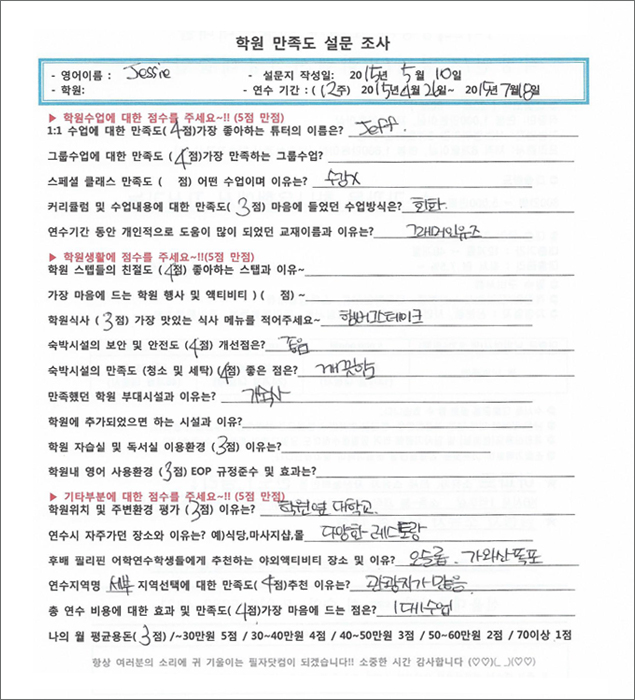 학원 만족도 설문 조사
- 영어이름 : Jessie - 설문지 작성일: 2015년 5월 10일
- 학원: - 연수 기간 : (12주) 2015년4월26일~ 2015년7월18일
▶ 학원수업에 대한 점수를 주세요~!! (5점 만점)
1:1 수업에 대한 만족도(4점)가장 좋아하는 튜터의 이름은? Jeff.
그룹수업에 대한 만족도 (4점)가장 만족하는 그룹수업?
스페셜 클래스 만족도 ( 점) 어떤 수업이며 이유는? 수강X
커리큘럼 및 수업내용에 대한 만족도(3점) 마음에 들었던 수업방식은? 회화.
연수기간 동안 개인적으로 도움이 많이 되었던 교재이름과 이유는? 그래머인유즈
▶ 학원생활에 점수를 주세요~!!(5점 만점)
학원 스텝들의 친절도 (4점) 좋아하는 스탭과 이유~
가장 마음에 드는 학원 행사 및 액티비티 ) ( 점) ~
학원식사 (3점) 가장 맛있는 식사 메뉴를 적어주세요~ 햄버그스테이크
숙박시설의 보안 및 안전도 (4점) 개선점은? 좋음
숙박시설의 만족도 (청소 및 세탁) (4점) 좋은 점은? 깨끗함
만족했던 학원 부대시설과 이유는? 기숙사
학원에 추가되었으면 하는 시설과 이유?
학원 자습실 및 독서실 이용환경 (3점) 이유는?
학원내 영어 사용환경 (3점) EOP 규정준수 및 효과는?
▶ 기타부분에 대한 점수를 주세요~!! (5점 만점)
학원위치 및 주변환경 평가 (3점) 이유는? 학원옆 대학교.
연수시 자주가던 장소와 이유는? 예)식당,마사지샵,몰 다양한 레스토랑
후배 필리핀 어학연수학생들에게 추천하는 야외액티비티 장소 및 이유? 오슬롭. 가와산폭포
연수지역명 세부 지역선택에 대한 만족도(4점)추천 이유는? 관광지가 많음.
총 연수 비용에 대한 효과 및 만족도(4점)가장 마음에 드는 점은? 1대1수업
나의 월 평균용돈(3점) /~30만원 5점 / 30~40만원 4점 / 40~50만원 3점 / 50~60만원 2점 / 70이상 1점
항상 여러분의 소리에 귀 기울이는 필자닷컴이 되겠습니다!! 소중한 시간 감사합니다 (♡♡)(_ _)(♡♡)